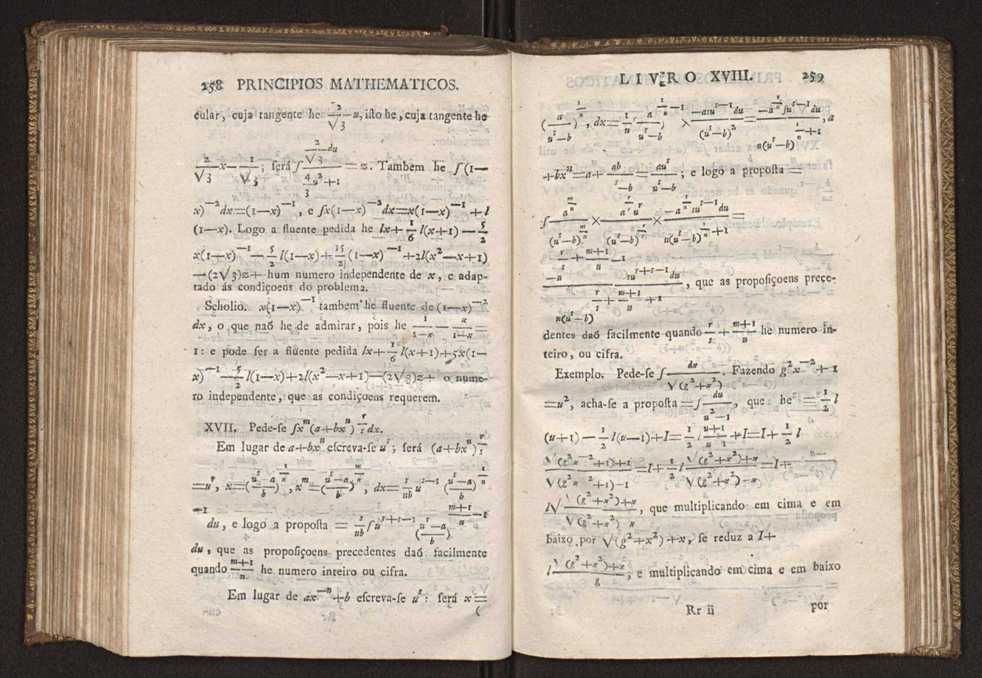 258 PRINCIPIOS MATHEMATICOS.
cular, cuja tangente he 2/√3 u, isto he, cuja tangente he
2/√3 x − 1/√3; será ∫ (2/√3 du)/(4/3 u²+1) = z. Tambem he ∫(1−
x)⁻²dx=(1−x)⁻¹, e ∫x(1−x)⁻²dx=x(1−x)⁻¹+l
(1−x). Logo a fluente pedida he lx+1/6 l(x+1)−5/2
x(1−x)⁻¹−5/2 l(1−x)+15/2(1−x)⁻¹+2l(x²−x+1)
−(2√3)z+ hum numero independente de x, e adap-
tado ás condiçoens do problema.
Scholio. x(1−x)⁻¹ tambem he fluente de (1−x)⁻²
dx, o que naõ he de admirar, pois he 1/(1−x) − x/(1−x) =
1: e pode ser a fluente pedida lx+1/6 l(x+1)+5x(1−
x)⁻¹−5/2 l(1−x)+2l(x²−x+1)−(2√3)z+ o nume-
ro independente, que as condiçoens requerem.
XVII. Pede-se ∫xᵐ(a+bxⁿ)^(r/s)dx.
Em lugar de a+bxⁿ escreva-se uˢ; será (a+bxⁿ)^(r/s)
=uʳ, x=((uˢ−a)/b)^(1/n), xᵐ=((uˢ−a)/b)^(m/n), dx=s/(nb) uˢ⁻¹((uˢ−a)/b)^(1/n
−1)
du, e logo a proposta = s/(nb)∫uʳ⁺ˢ⁻¹((uˢ−a)/b)^((m+1)/n −1)
du, que as proposiçoens precedentes daõ facilmente
quando (m+1)/n he numero inteiro ou cifra.
Em lugar de ax⁻ⁿ+b escreva-se uˢ: será x=
(
LIVRO XVIII. 259
(a/(uˢ−b))^(1/n), dx=1/n (a/(uˢ−b))^(1/n −1) × −asuˢ⁻¹du/(uˢ−b)² = −a^(1/n)suˢ⁻¹du/n(uˢ−b)^(1/n +1), a
+bxⁿ=a+ab/(uˢ−b)=auˢ/(uˢ−b); e logo a proposta =
∫ a^(m/n)/(uˢ−b)^(m/n) × a^(r/s)uʳ/(uˢ−b)^(r/s) × −a^(1/n)suˢ⁻¹du/n(uˢ−b)^(1/n +1) =
−a^(r/s + (m+1)/n)suʳ⁺ˢ⁻¹du/n(uˢ−b)^(r/s + (m+1)/n +1), que as proposiçoens prece-
dentes daõ facilmente quando r/s + (m+1)/n he numero in-
teiro, ou cifra.
Exemplo. Pede-se ∫ dx/√(g²+x²). Fazendo g²x⁻²+1
=u², acha-se a proposta =∫ −du/(u²−1), que he = 1/2 l
(u+1)−1/2 l(u−1)+I=1/2 l (u+1)/(u−1)+I=I+1/2 l
(√(g²x⁻²+1)+1)/(√(g²x⁻²+1)−1)=I+1/2 l (√(g²+x²)+x)/(√(g²+x²)−x)=I+
l√((√(g²+x²)+x)/(√(g²+x²)−x)), que multiplicando em cima e em
baixo por √(g²+x²)+x, se reduz a I+
l (√(g²+x²)+x)/g, e multiplicando em cima e em baixo
Rr ii por